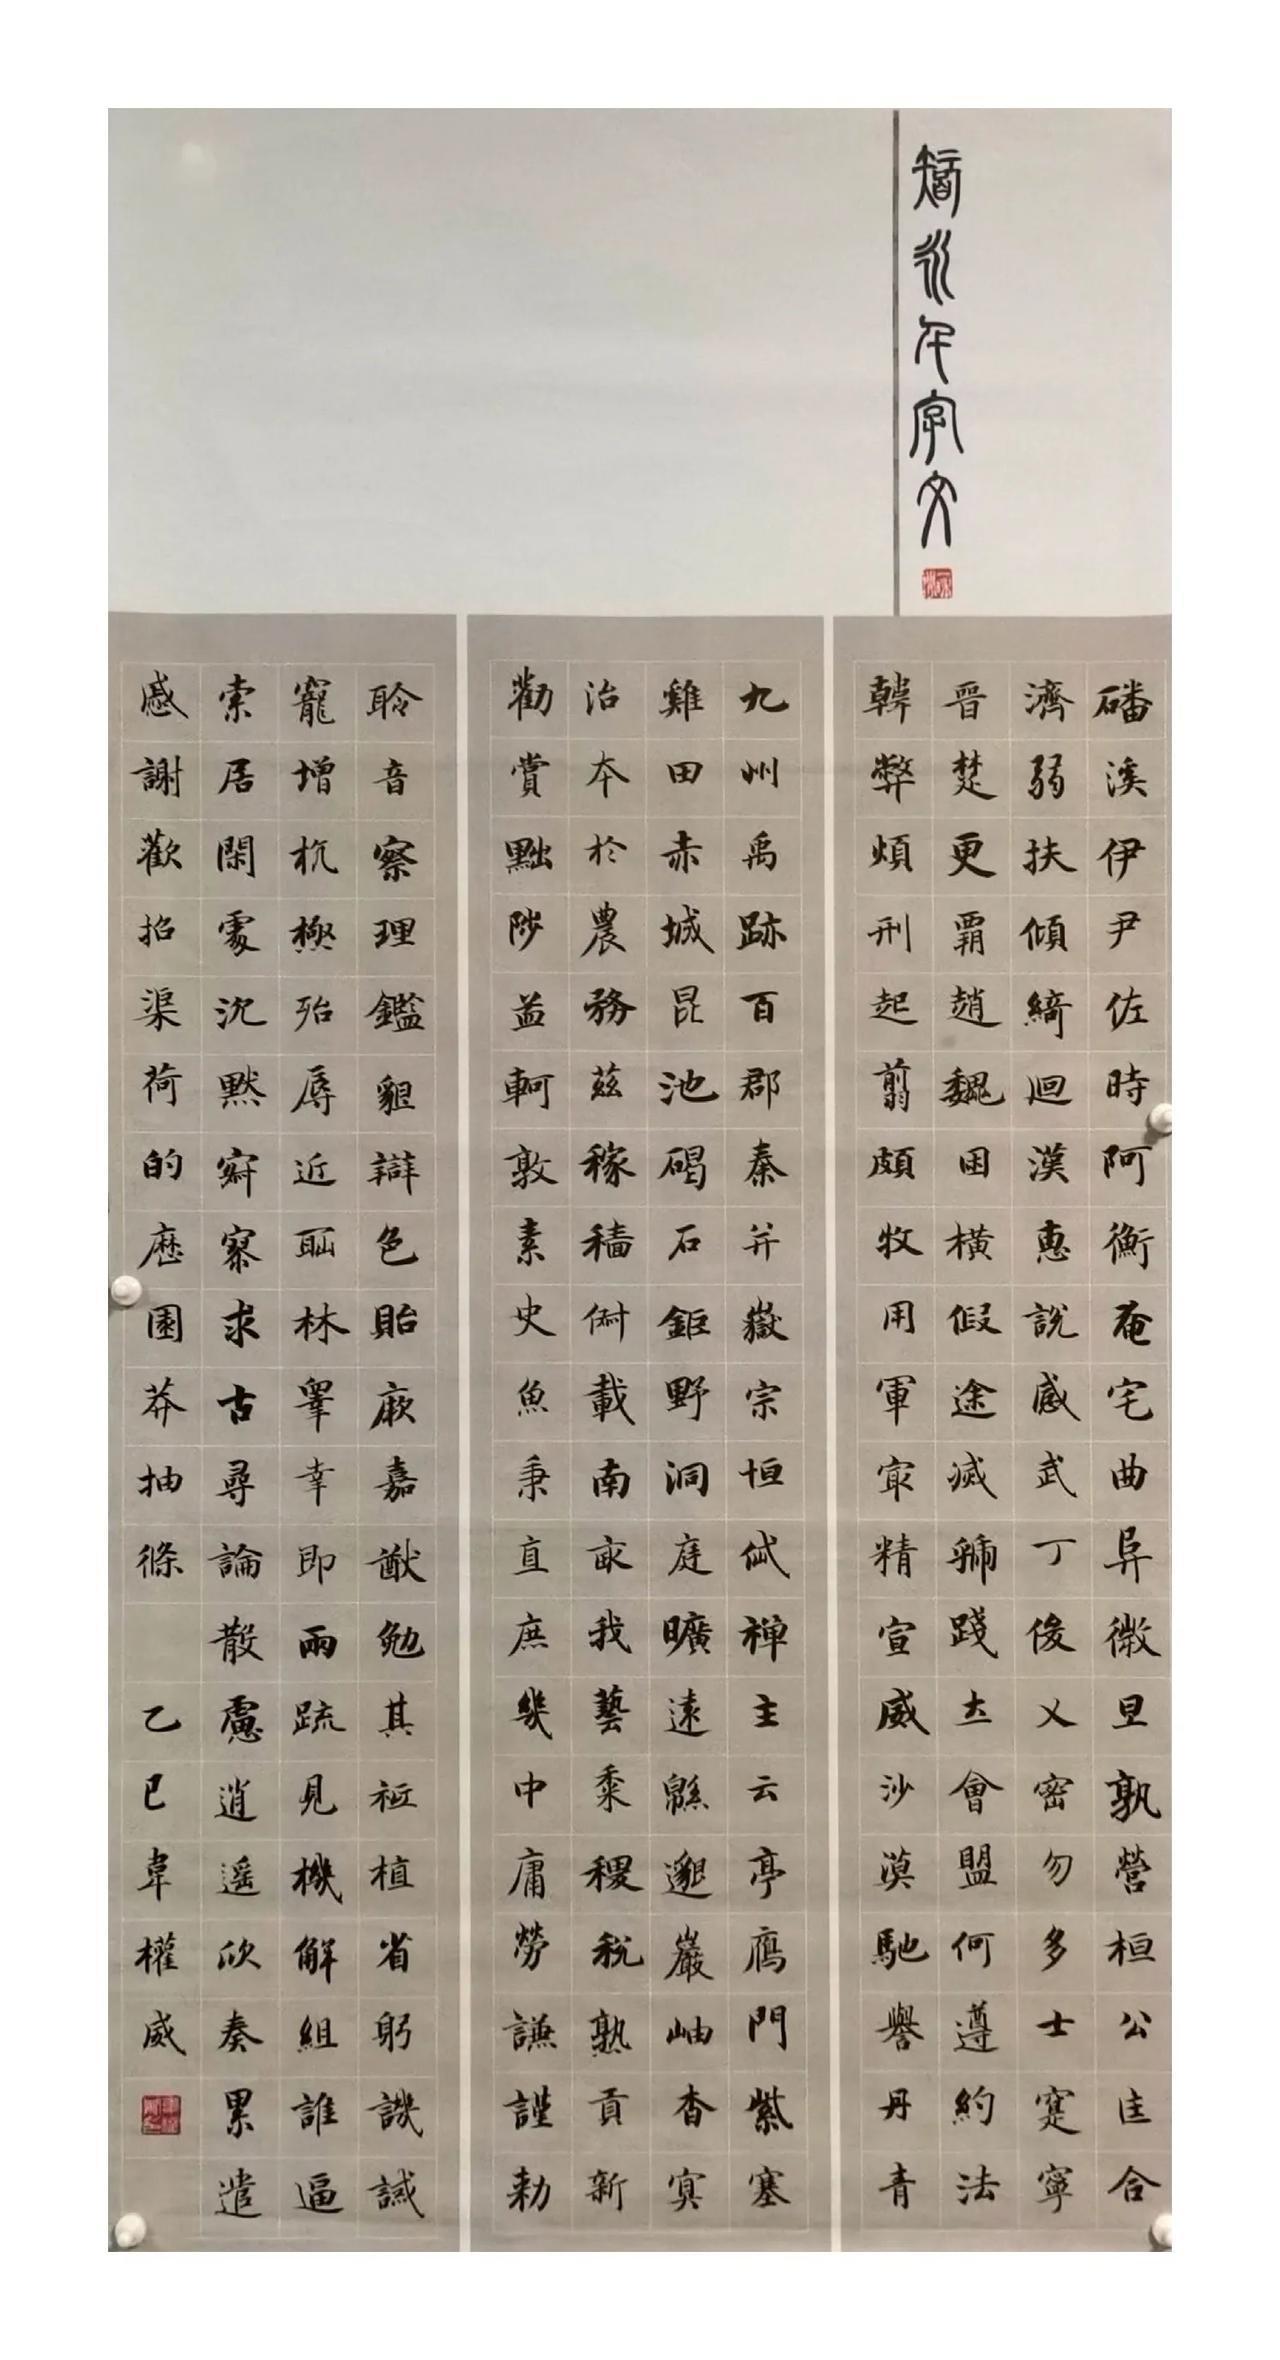 智永千字文
磻溪伊尹佐時阿衡奄宅曲阜微旦孰營桓公匡合
濟弱扶傾綺迴漢惠說感武丁俊乂密勿多士寔寧
晉楚更霸趙魏困橫假途滅虢踐土會盟何遵約法
韓弊煩刑起翦頗牧用軍最精宣威沙漠馳譽丹青
九州禹跡百郡秦并嶽宗恒岱禪主云亭鴈門紫塞
雞田赤城昆池碣石鉅野洞庭曠遠緜邈巖岫杳冥
治本於農務茲稼穡俶載南畝我藝黍稷稅熟貢新
勸賞黜陟孟軻敦素史魚秉直庶幾中庸勞謙謹勑
聆音察理鑑貌辯色貽厥嘉猷勉其祗植省躬譏誡
寵增抗極殆辱近恥林皋幸即兩疏見機解組誰逼
索居閑處沉默寂寥求古尋論散慮逍遙欣奏累遣
慼謝歡招渠荷的歷園莽抽條 乙巳韋權威